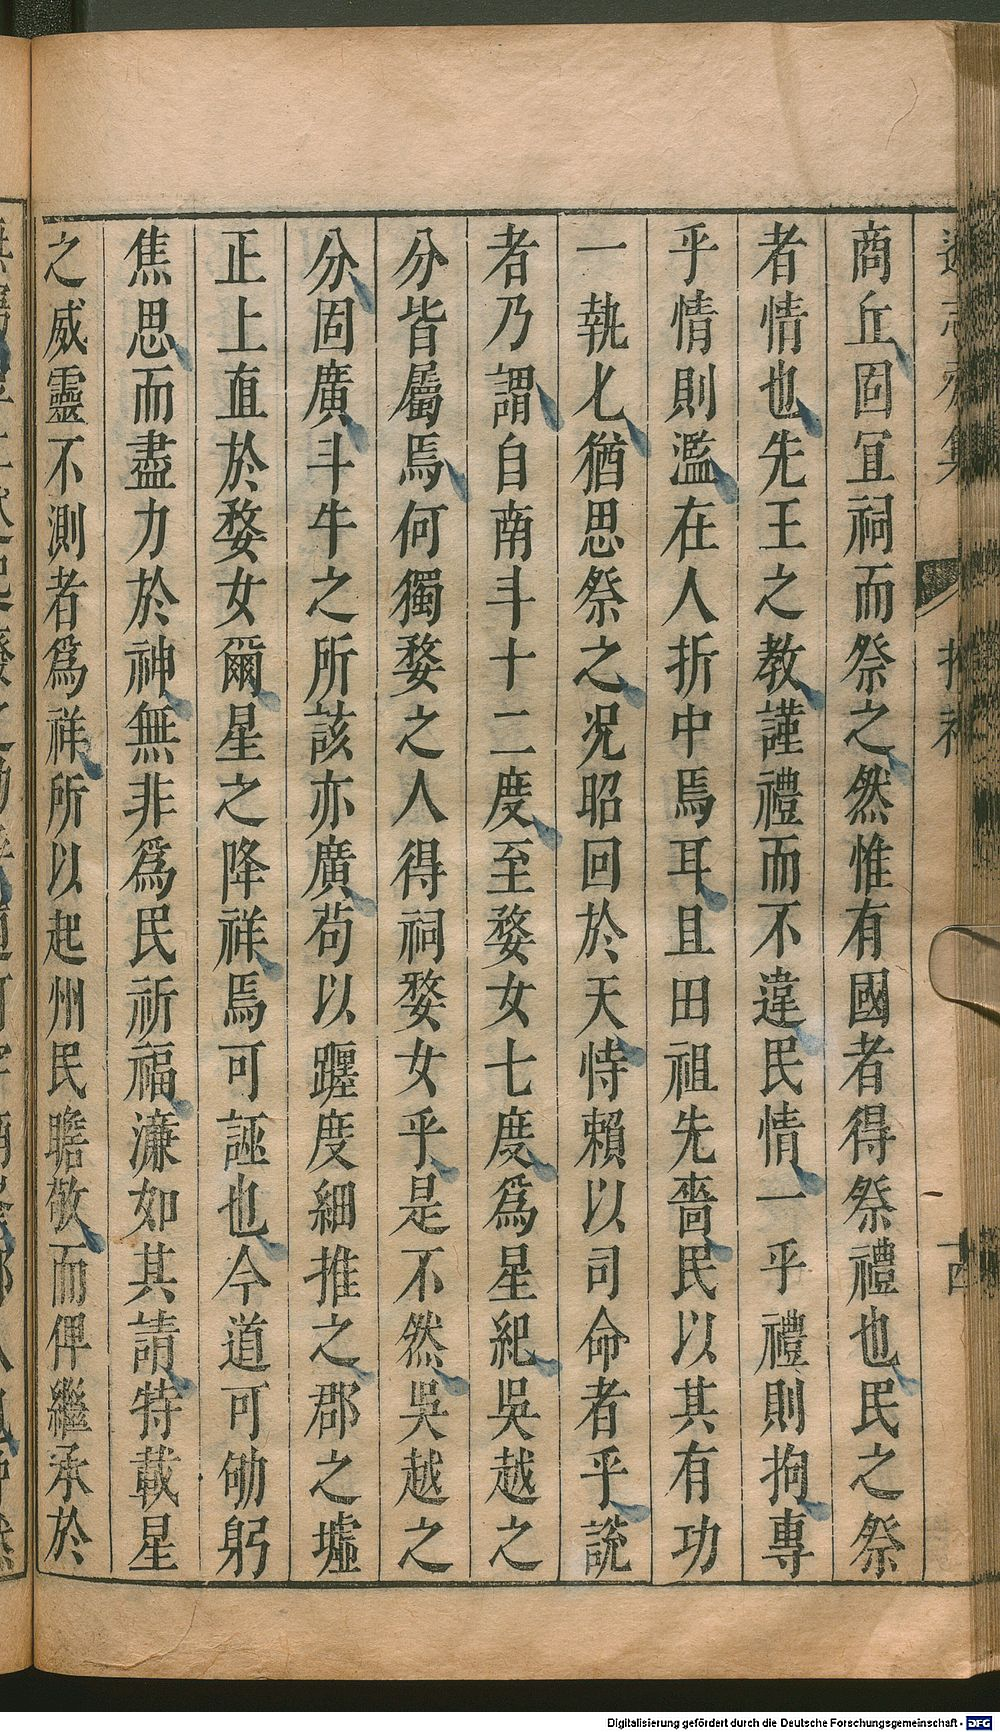 商丘固冝祠而祭之然惟有國者得祭禮也民之祭
者情也先王之教謹禮而不違民情一乎禮則拘專
乎情則濫在人折中焉耳且田祖先嗇民以其有功
一執匕猶思祭之况昭回於天恃賴以司命者乎說
者乃謂自南斗十二度至婺女七度爲星紀吳越之
分皆屬焉何獨婺之人得祠婺女乎是不然吳越之
分固廣斗牛之所該亦廣苟以躔度細推之郡之墟
正上直於婺女爾星之降祥焉可誣也今道可劬躬
焦思而盡力於神無非爲民祈福濂如其請特載星
之威靈不測者爲祥所以起州民瞻敬而俾繼承於
Digitalisierung gefördert durch die Deutsche Forschungsgemeinschaft - DFG